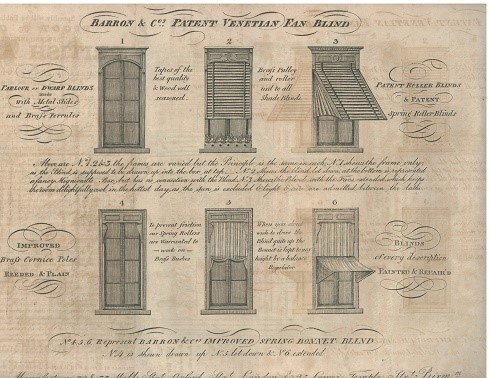 BARRON & Co's PATENT VENETIAN FAN BLIND
1
2
3
PARLOUR or DWARF BLINDS
made
with Metal Slides
and Brass Ferrules
Tapes of the
best quality
& Wood well
seasoned
Brass Pulley
and roller
nid to all
Shade Blinds
PATENT ROLLER BLINDS
& PATENT
Spring Roller Blinds
Above are No 1, 2 & 3 the frames are varied but the Principle is the same in each, No 1 shews the frame only;
as the Blind is supposed to be drawn up into the box at top. No 2 shews the blind let down, at the bottom is represented
the room delightfully cool in the hottest day, as the sun is excluded & light & air are admitted between the laths.
4
5
6
IMPROVED
Brass Cornice Poles
REEDED & PLAIN
To prevent friction
our Spring Rollers
are Warranted to
work on
Brass Bushes
When you draw
Blind quite up the
Bonnet is kept to any
height by a balance
Regulator
BLINDS
of every description
PAINTED & REPAIR'D
No 4, 5, 6 Represent BARRON & Co's IMPROVED SPRING BONNET BLIND
No 4 is shewn drawn up No 5 let down & No 6 extended